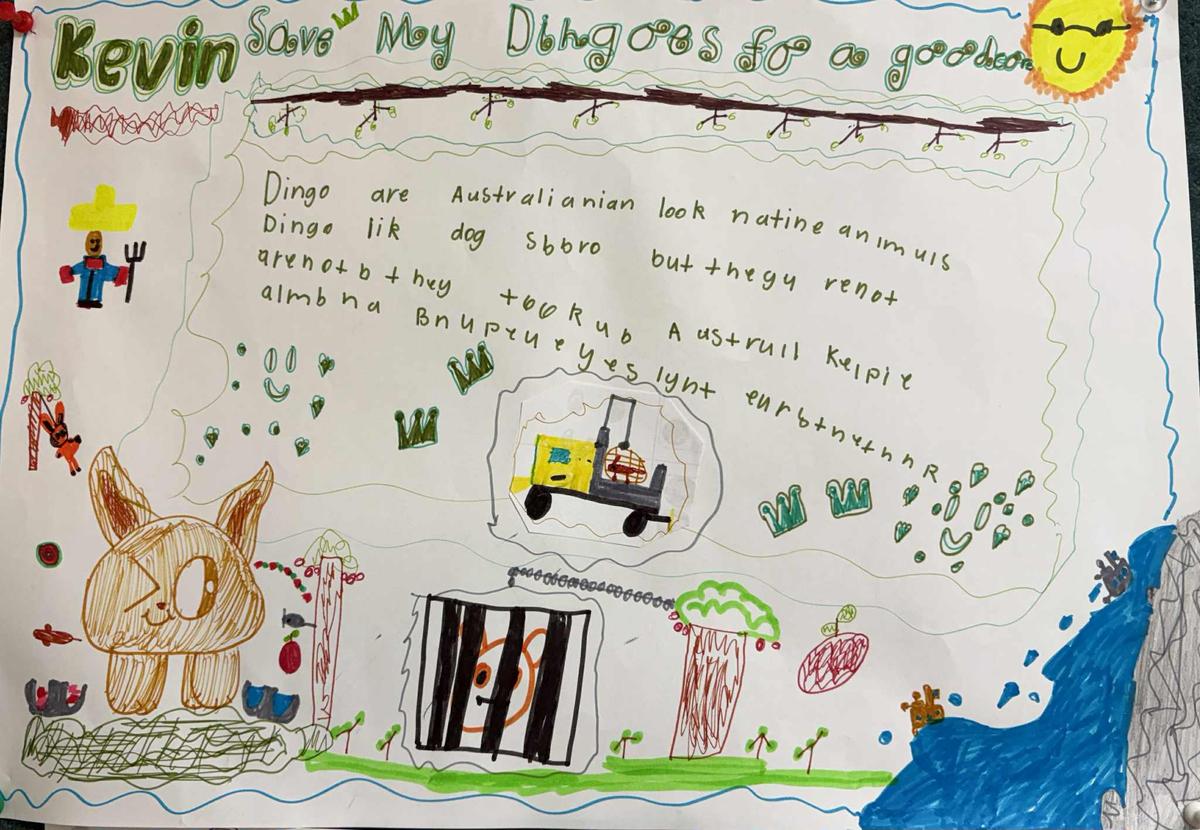 Kevin Save My Dingoes fo a
Dingo are Australianian look natine animuls
Dingo lik dog sbbro but thegy renot
arenotb they tookub Austrull Kelpie
almbna lynt